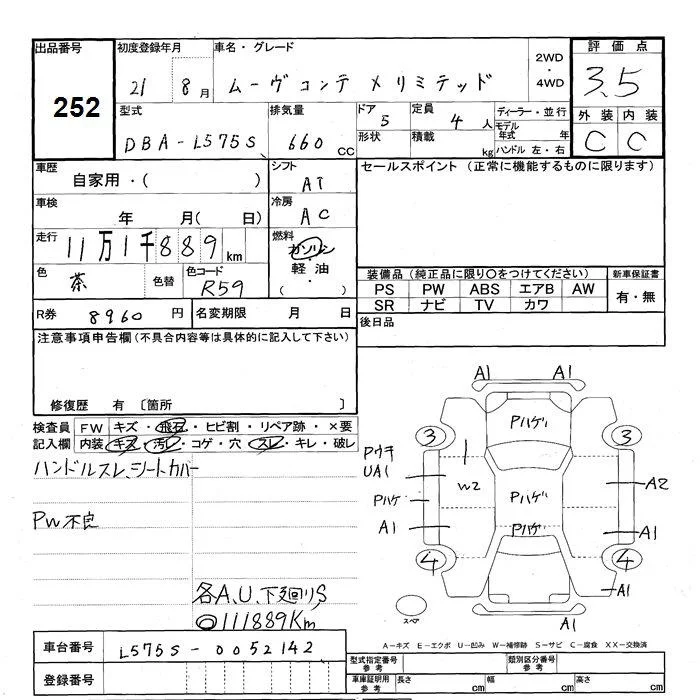 出品番号 初度登録年月 車名・グレード 2WD・4WD 評価点
252 21 8月 ムーヴコンテ メリミテッド 3.5
型式 排気量 ドア 5 定員 4人 ディーラー・並行 外装 内装
DBA-L575S 660cc 形状 積載 kg モデル年式 年 C C
ハンドル 左・右
車歴 自家用・( ) シフト AT セールスポイント (正常に機能するものに限ります)
車検 年 月( 日) 冷房 AC
走行 11万1千889km 燃料 ガソリン・軽油・( )
色 茶 色替 色コード R59
装備品 (純正品に限り〇をつけてください) 新車保証書
PS PW ABS エアB AW 有・無
SR ナビ TV カワ
R券 8960円 名変期限 月 日 後日品
注意事項申告欄 (不具合内容等は具体的に記入して下さい)
修復歴 有 〔箇所 〕
検査員記入欄 FW キズ・飛石・ヒビ割・リペア跡・×要
内装 キズ・汚レ・コゲ・穴・スレ・キレ・破レ
ハンドルスレ、シートカバー
PW不良
各A、U、下廻りS
◎111889Km
A1 A1
Pハゲ
3 3
Pウキ
UA1 W2 A2
Pハゲ Pハゲ
A1 Pハゲ A1
4 4
A1
スペア A1
A-キズ E-エクボ U-凹み W-補修跡 S-サビ C-腐食 XX-交換済
車台番号 L575S-0052142
登録番号
型式指定番号 参考 類別区分番号 参考
車庫証明用 参考 長さ cm 幅 cm 高さ cm